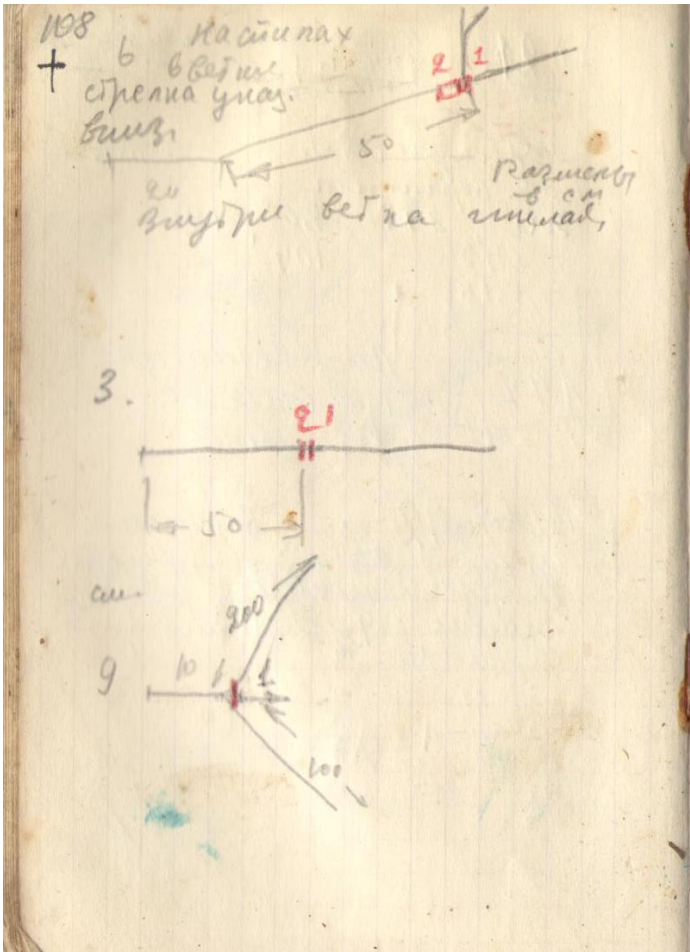 108
6 На спилах
ветки
стрелка указ.
вниз.
2 1
50
20
Размеры
в см
Внутри ветка гнилая,
3.
2 1
50
см.
200
9 10 1
100